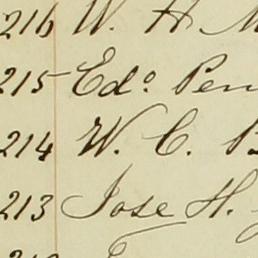 216 W. H.
215 Edo. Pen
214 W. C. B
213 Jose H.